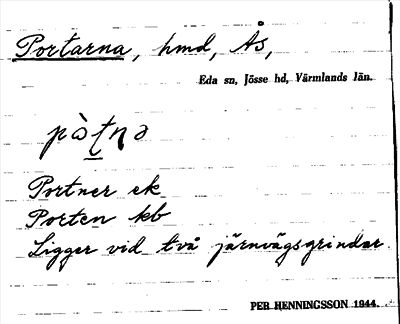 Portarna, hmd, Ås,
Eda sn, Jösse hd, Värmlands län.
pòṯṇə
Portner ek
Porten kb
Ligger vid två järnvägsgrindar.
PER HENNINGSSON 1944.